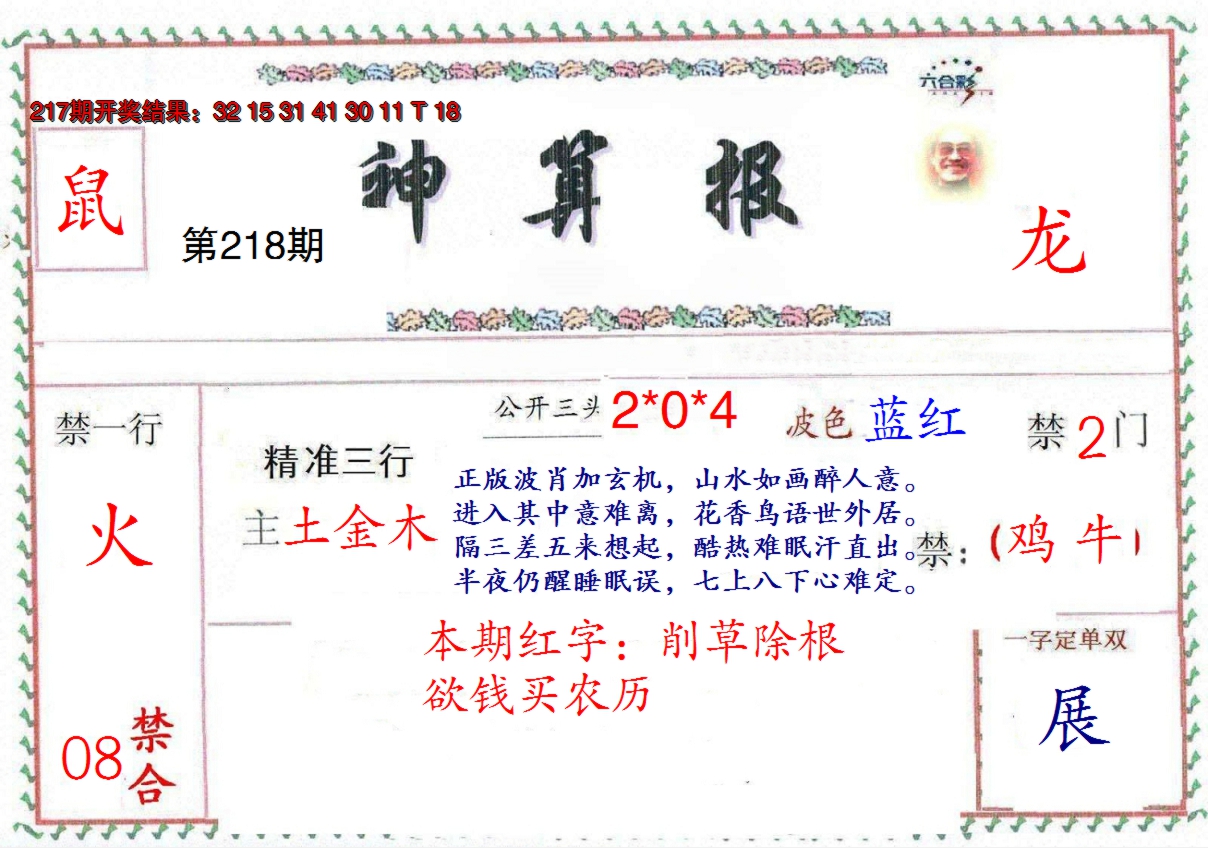 六合彩
217期开奖结果：32 15 31 41 30 11 T 18
神算报
鼠
第218期
龙
禁一行
火
08禁合
精准三行
主土金木
公开三头2*0*4
波色 蓝红
禁2门
正版波肖加玄机，山水如画醉人意。
进入其中意难离，花香鸟语世外居。
隔三差五来想起，酷热难眠汗直出。
半夜仍醒睡眠误，七上八下心难定。
禁：（鸡 牛）
本期红字：削草除根
欲钱买农历
一字定单双
展